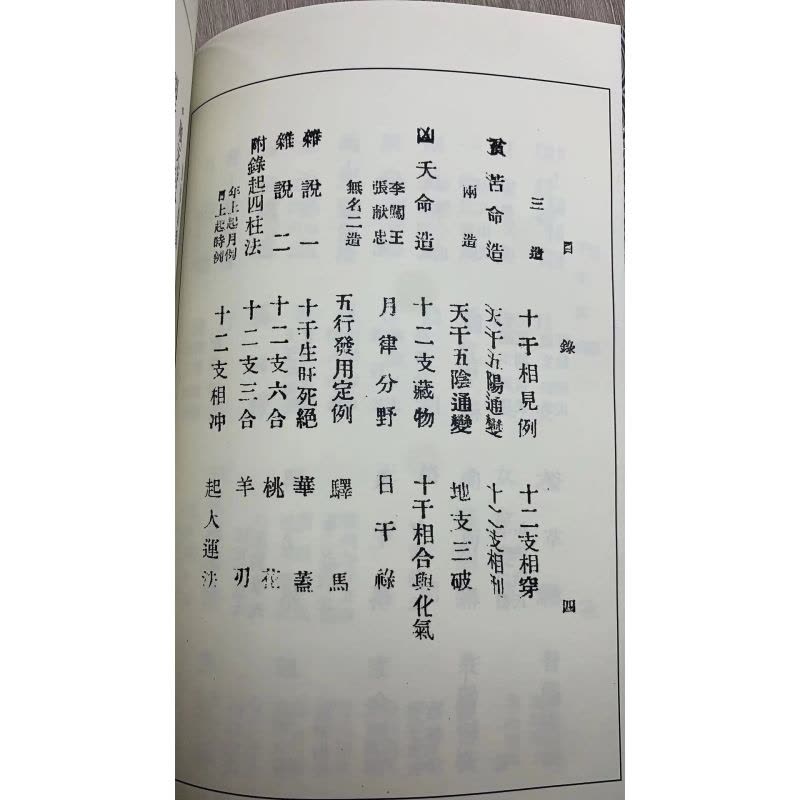 目錄 四
三造
貧苦命造
兩造
凶夭命造
李闖王
張献忠
無名二造
雜說一
雜說二
附錄起四柱法
年上起月例
日上起時例
十干相見例
天干五陽通變
天干五陰通變
十二支藏物
月律分野
五行發用定例
十干生旺死絕
十二支六合
十二支三合
十二支相冲
十二支相穿
十二支相刑
地支三破
十干相合與化氣
日干祿
驛馬
華蓋
桃花
羊刃
起大運法